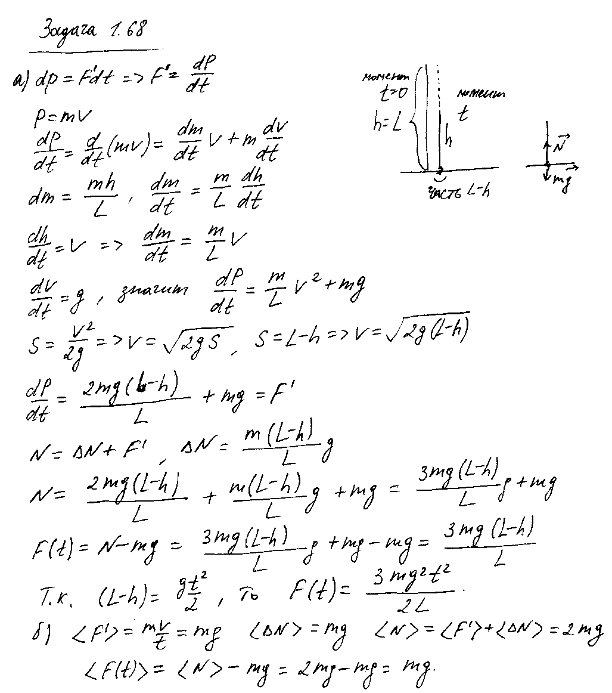 Задача 1.68
а) dp = F'dt => F' = dP/dt
P = mV
dP/dt = d/dt (mV) = dm/dt V + m dV/dt
dm = mh/L , dm/dt = m/L dh/dt
dh/dt = V => dm/dt = m/L V
dV/dt = g , значит dP/dt = m/L V² + mg
S = V²/2g => V = √2gS , S = L-h => V = √2g(L-h)
dP/dt = 2mg(L-h)/L + mg = F'
N = ΔN + F' , ΔN = m(L-h)/L g
N = 2mg(L-h)/L + m(L-h)/L g + mg = 3mg(L-h)/L g + mg
F(t) = N - mg = 3mg(L-h)/L g + mg - mg = 3mg(L-h)/L
Т.к. (L-h) = gt²/2 , то F(t) = 3mg²t²/2L .
б) <F'> = mV/t = mg <ΔN> = mg <N> = <F'> + <ΔN> = 2mg
<F(t)> = <N> - mg = 2mg - mg = mg.
момент
t=0
h=L
момент
t
h
часть L-h
N
mg